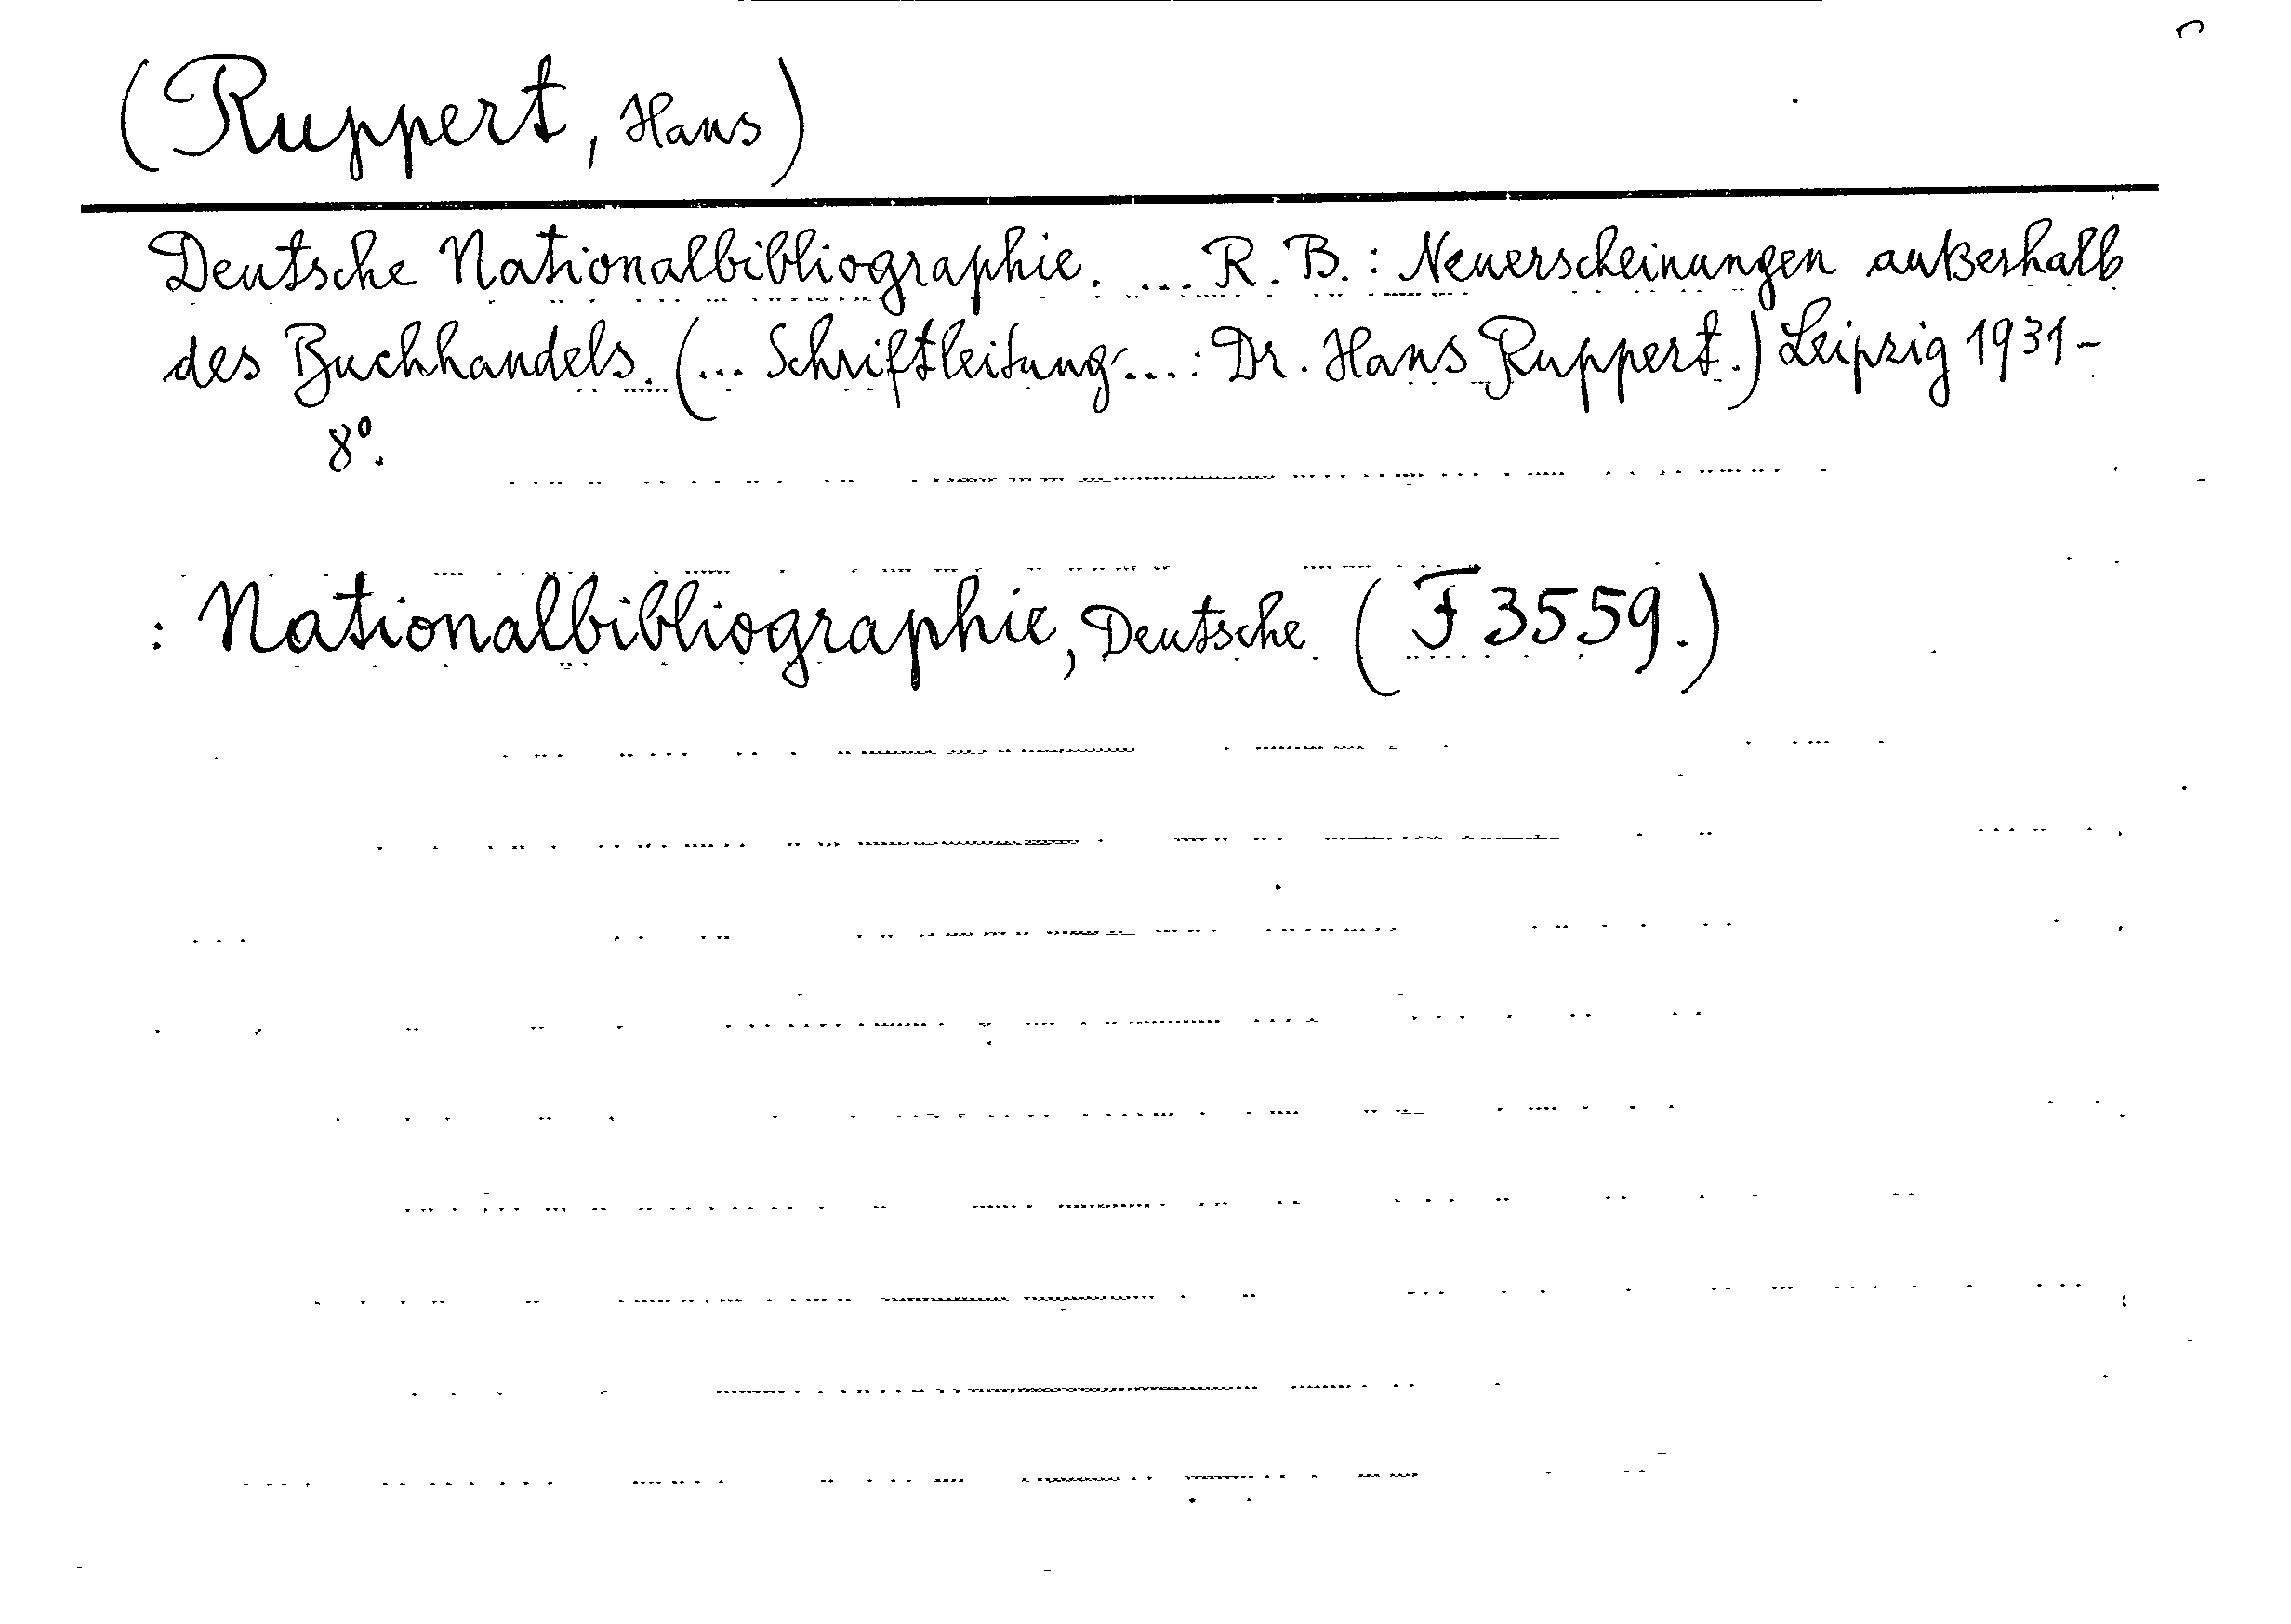 (Ruppert, Hans)
Deutsche Nationalbibliographie. ... R. B.: Neuerscheinungen außerhalb
des Buchhandels. (... Schriftleitung ...: Dr. Hans Ruppert.) Leipzig 1931-
8°.
: Nationalbibliographie, Deutsche (F 3559.)